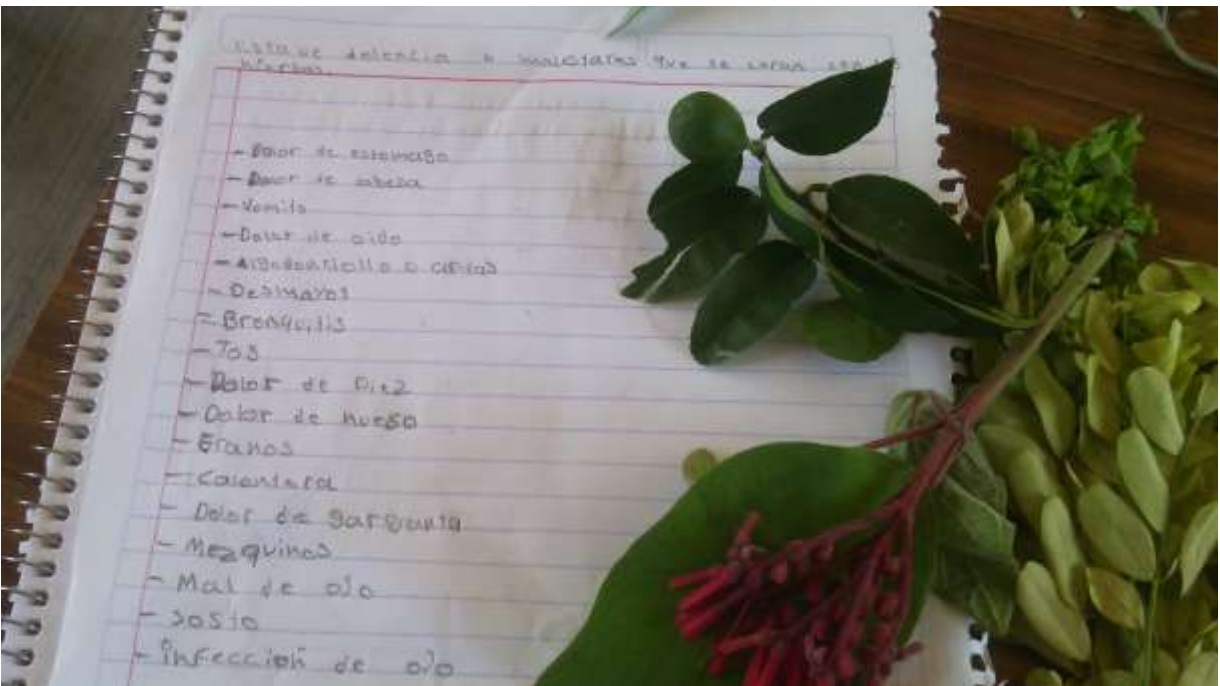 dolencia o malestares que se curan con
hierbas.
- Dolor de estomago
- Dolor de cabeza
- Vomito
- Dolor de oido
- Algodoncillo o
- Desmayos
- Bronquitis
- Tos
- Dolor de Piez
- Dolor de hueso
- Granos
- Calentura
- Dolor de garganta
- Mezquinos
- Mal de ojo
- sosto
- infeccion de ojo